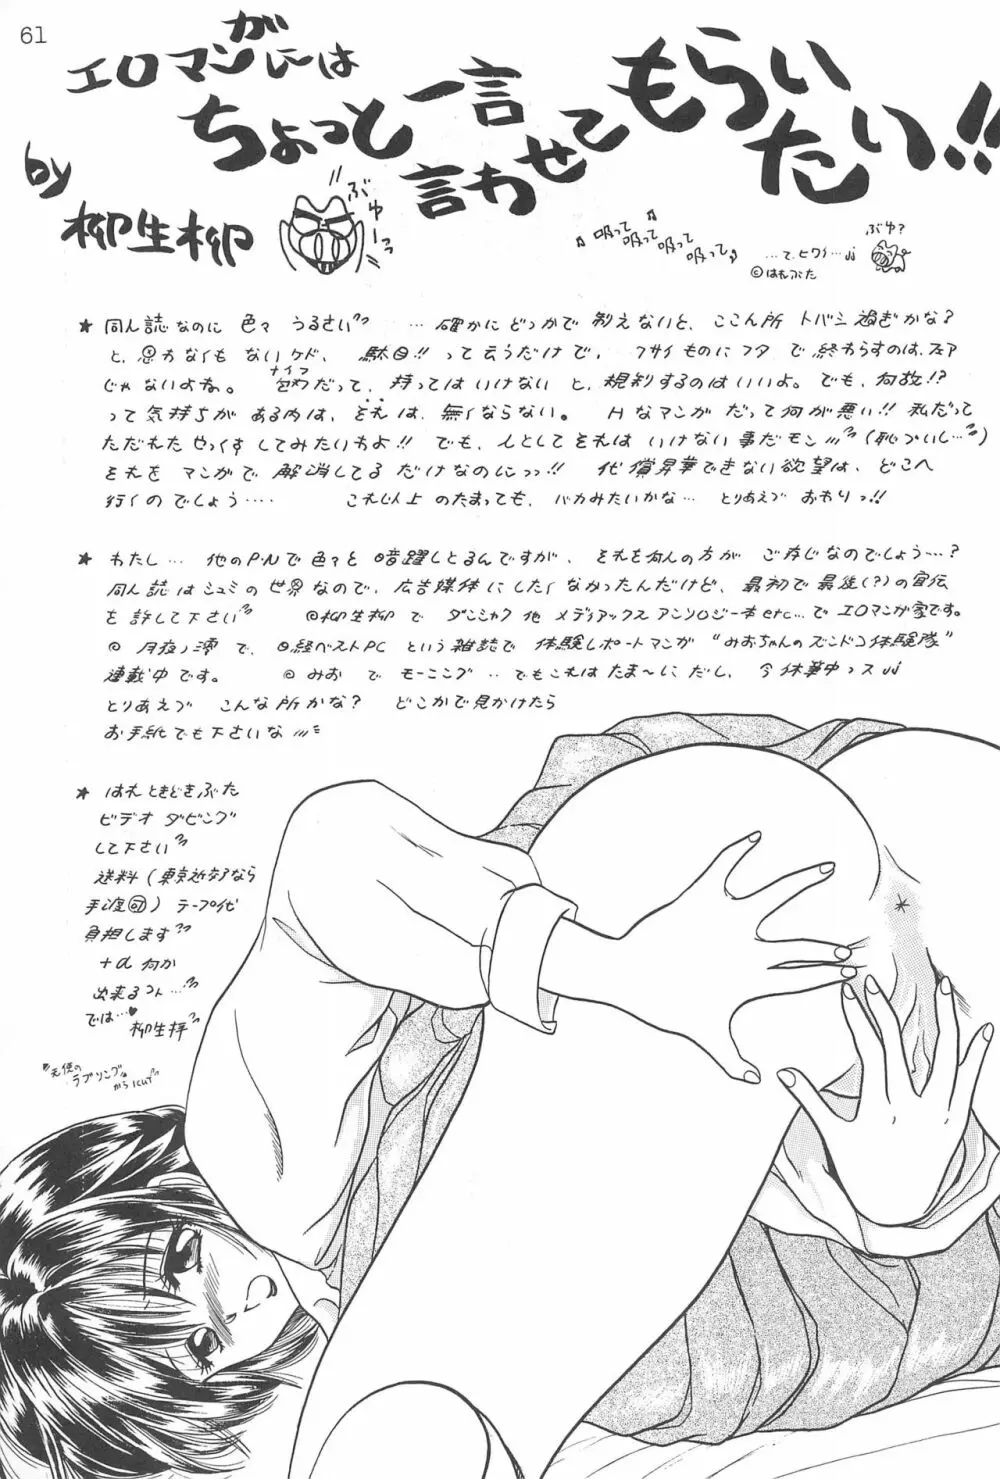 61
エロマンガには
ちょっと一言
言わせて
もらい
たい!!
by
柳生柳
ぶゅーっ
吸って吸って吸って吸って
…て、ヒワイ…
©はれぶた
ぶゅ?
★ 同人誌なのに 色々 うるさい …確かにどっかで 制えないと、ここん所 トバシ過ぎかな?
と、思わなくもないケド、駄目!! って云うだけで、クサイものにフタ で終わらすのは、フェア
じゃないよね。包丁(ナイフ)だって、持ってはいけない と、規制するのはいいよ。でも、何故!?
って気持ちが ある内は、それは、無くならない。 Hなマンガ だって何が悪い!! 私だって
ただれた せっくす してみたいわよ!! でも、人としてそれは いけない 事だモン (恥づいし…)
それを マンガで 解消してる だけなのにっっ!! 代償昇華できない欲望は、どこへ
行くのでしょう…. これ以上 のたまっても、バカみたいかな… とりあえづ おわりっ!!
★ わたし… 他のP.Nで色々と 暗躍しとるんですが、それを何人の方が ご存じなのでしょう…?
同人誌はシュミの世界なので、広告媒体にしたくなかったんだけど、最初で最後(?)の宣伝
を許して下さい ◎柳生柳 で ダンシャク 他 メディアックス アンソロジー本etc…で エロマンガ家です。
◎ 月夜ノ澪 で、日経ベストPC という雑誌で 体験レポートマンガ “みおちゃんのズンドコ体験隊”
連載中です。 ◎みお で モーニング ‥でもこれは たま〜に だし、今 休華中っス
とりあえづ こんな所かな? どこかで見かけたら
お手紙でも下さいな
★ はれときどきぶた
ビデオ ダビング
して下さい
送料(東京近郊なら
手渡可) テープ代
負担します
+α 何か
出来るコト…
では…♥
柳生拝
天使の
ラブソング
から1cut